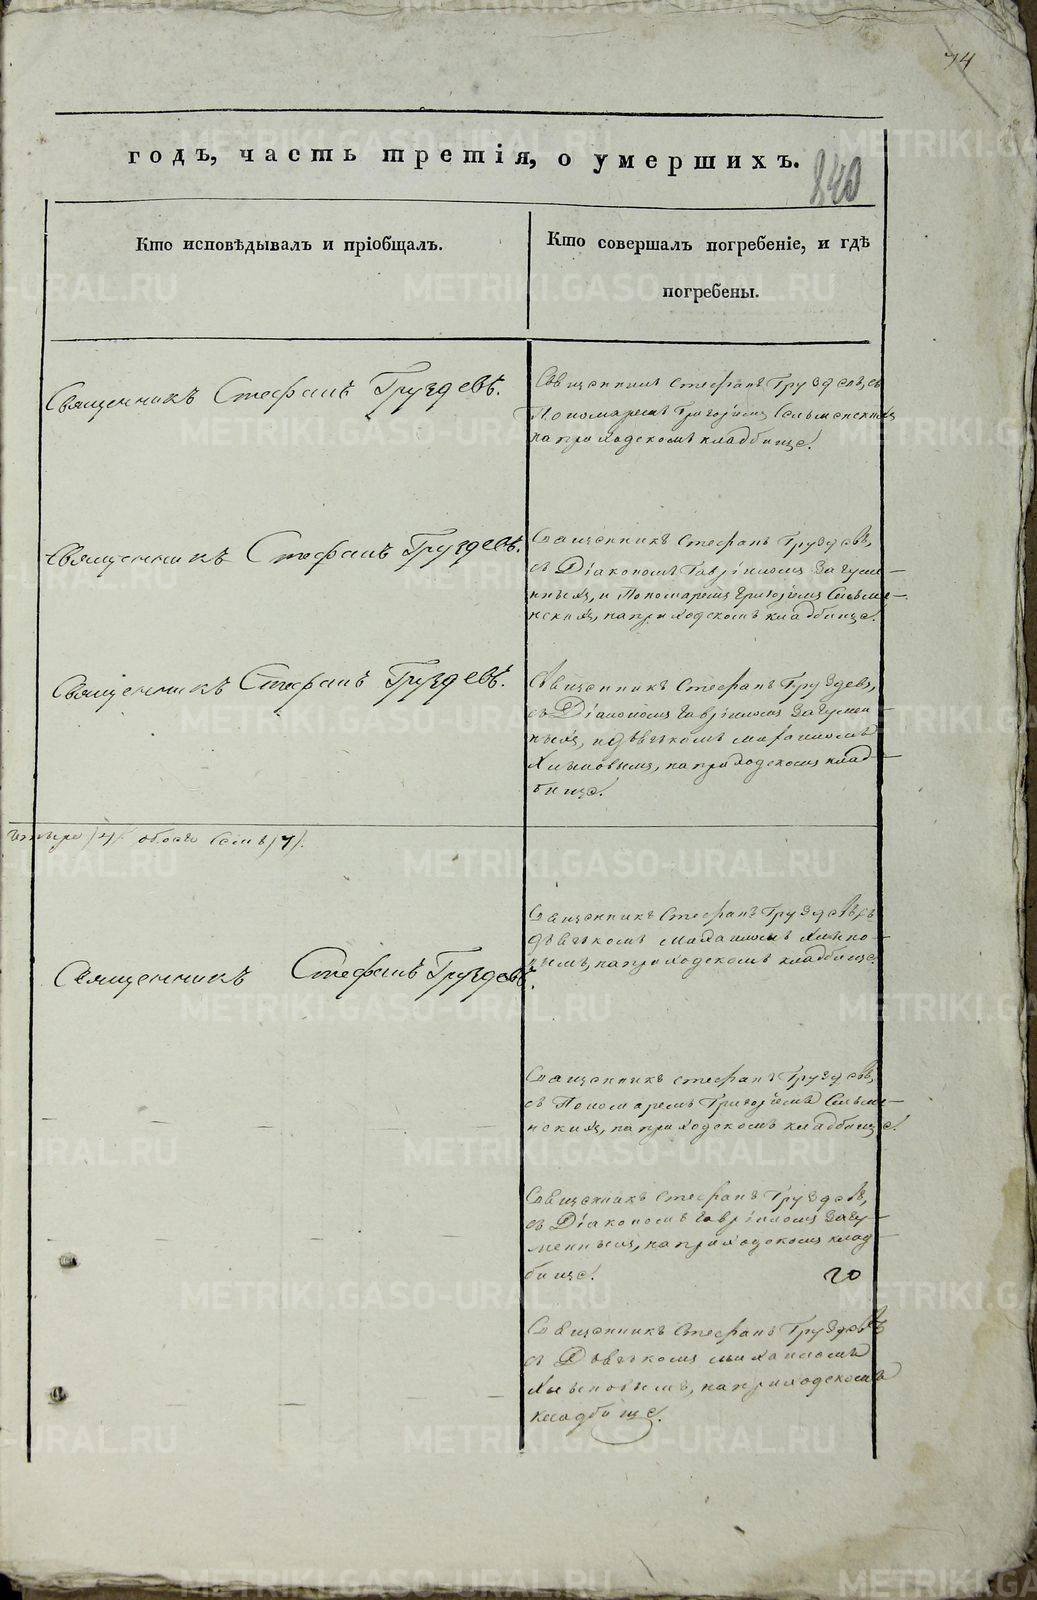 74
годъ, часть третія, о умершихъ.
840
Кто исповѣдывалъ и пріобщалъ.
Кто совершалъ погребеніе, и гдѣ
погребены.
Священникъ Стефанъ Груздевъ.
Священникъ Стефанъ Груздевъ съ
Пономаремъ Григоріемъ
на приходскомъ кладбище.
Священникъ Стефанъ Груздевъ.
Священникъ Стефанъ Груздевъ,
съ Діакономъ Гавріиломъ Загуме-
ннымъ, и Пономаремъ Григоріемъ Сельме-
нскимъ, на приходскомъ кладбище.
Священникъ Стефанъ Груздевъ.
Священникъ Стефанъ Груздевъ,
съ Діакономъ Гавріиломъ Загумен-
нымъ, и дьячкомъ Михаиломъ
Хлыновымъ, на приходскомъ клад-
бище.
четыре /4/ обоего семь /7/.
Священникъ Стефанъ Груздевъ.
Священникъ Стефанъ Груздевъ съ
дьячкомъ Михаиломъ Хлыно-
вымъ, на приходскомъ кладбище.
Священникъ Стефанъ Груздевъ,
съ Пономаремъ Григоріемъ Сельме-
нскимъ, на приходскомъ кладбище.
Священникъ Стефанъ Груздевъ,
съ Діакономъ Гавріиломъ Загу-
меннымъ, на приходскомъ клад-
бище.
20
Священникъ Стефанъ Груздевъ
съ Дьячкомъ Михаиломъ
Хлыновымъ, на приходскомъ
кладбище.
METRIKI.GASO-URAL.RU